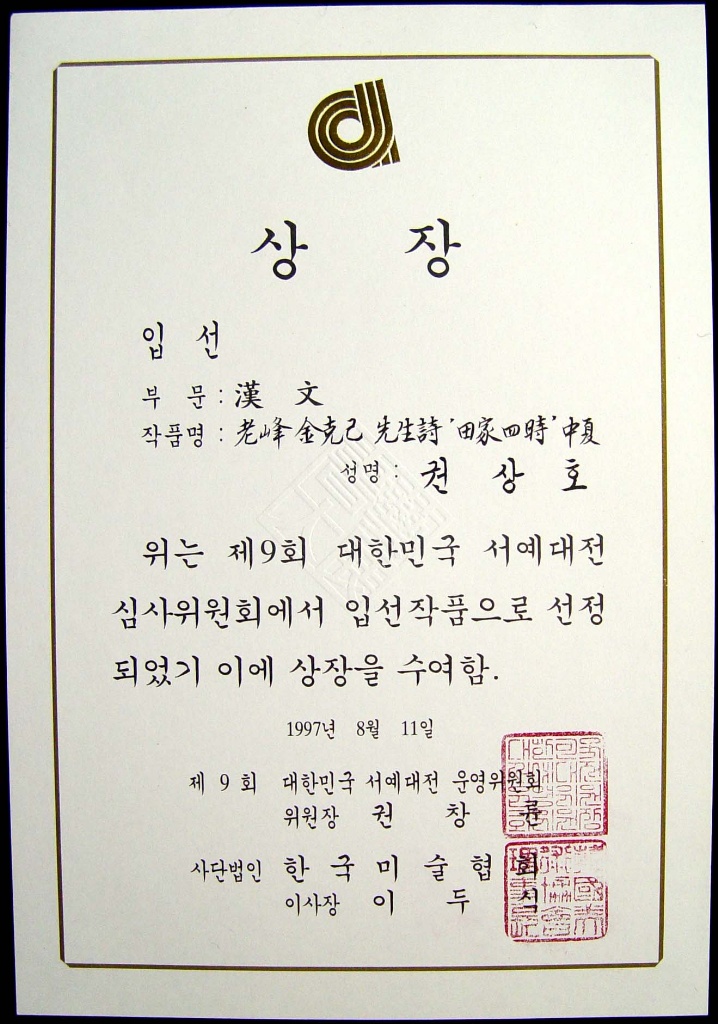 상 장
입 선
부 문 : 漢 文
작품명 : 老峰 金克己 先生詩 '田家四時' 中夏
성명 : 권 상 호
위는 제9회 대한민국 서예대전
심사위원회에서 입선작품으로 선정
되었기 이에 상장을 수여함.
1997년 8월 11일
제 9 회 대한민국 서예대전 운영위원회
위원장 권 창 륜
사단법인 한 국 미 술 협 회
이사장 이 두 식